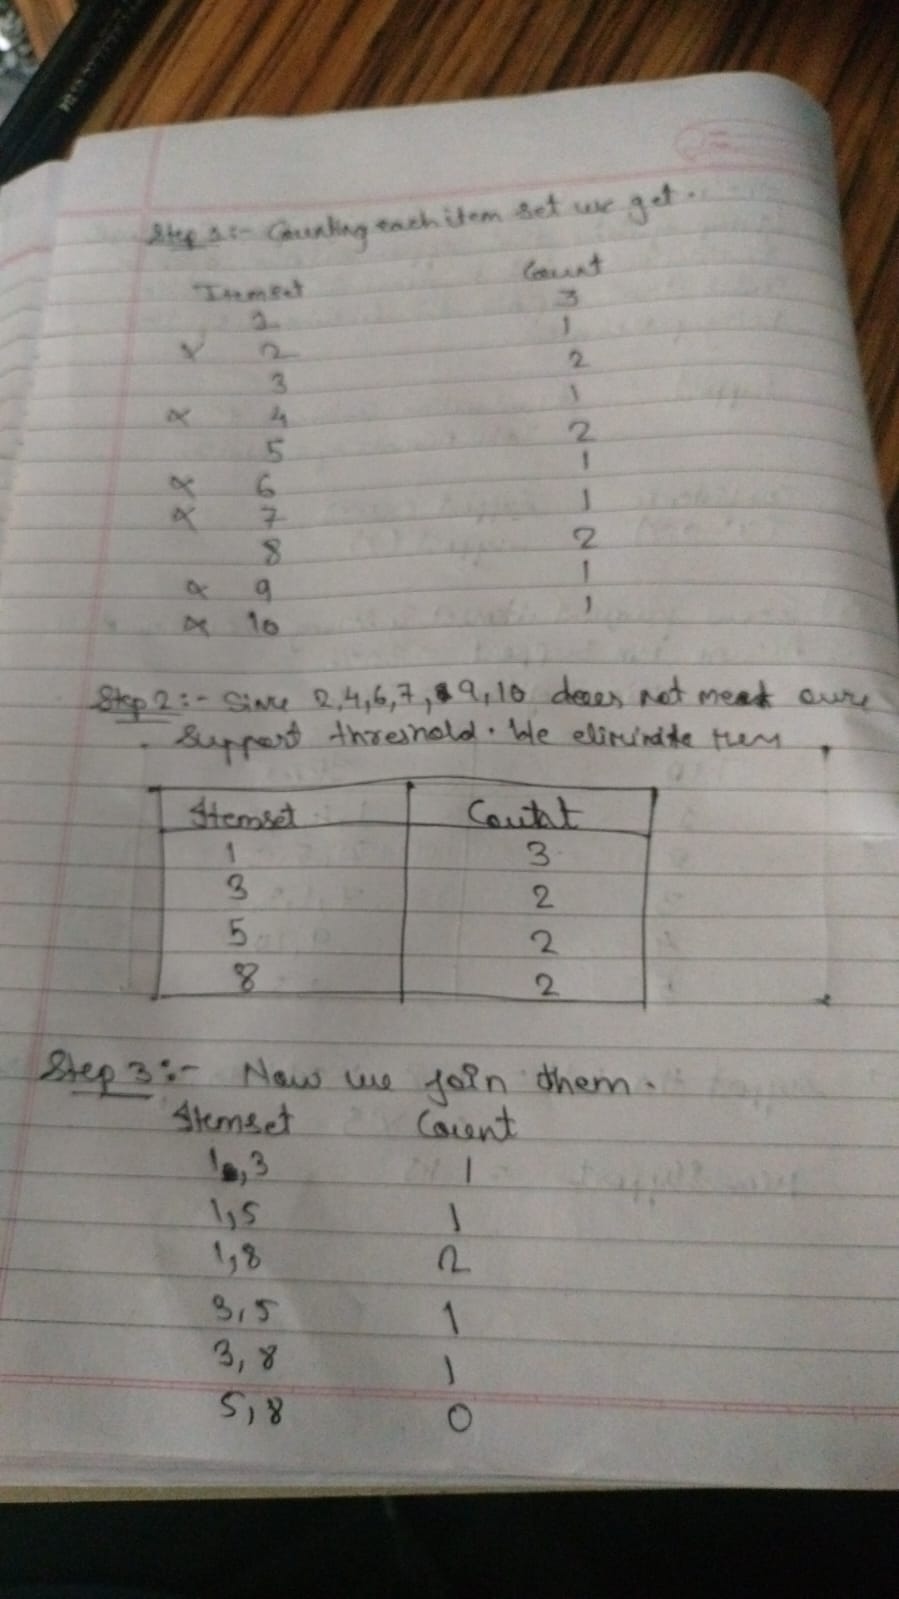 Step 1:- Counting each item set we get.
Itemset Count
1 3
x 2 1
3 2
x 4 1
5 2
x 6 1
x 7 1
8 2
x 9 1
x 10 1
Step 2:- Since 2,4,6,7, 9,10 does not meet our
support threshold. We eliminate them
Itemset Count
1 3
3 2
5 2
8 2
Step 3:- Now we join them.
Itemset Count
1,3 1
1,5 1
1,8 2
3,5 1
3,8 1
5,8 0